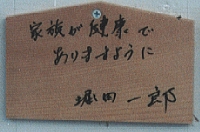 家族が健康で
ありますように
堀田一郎